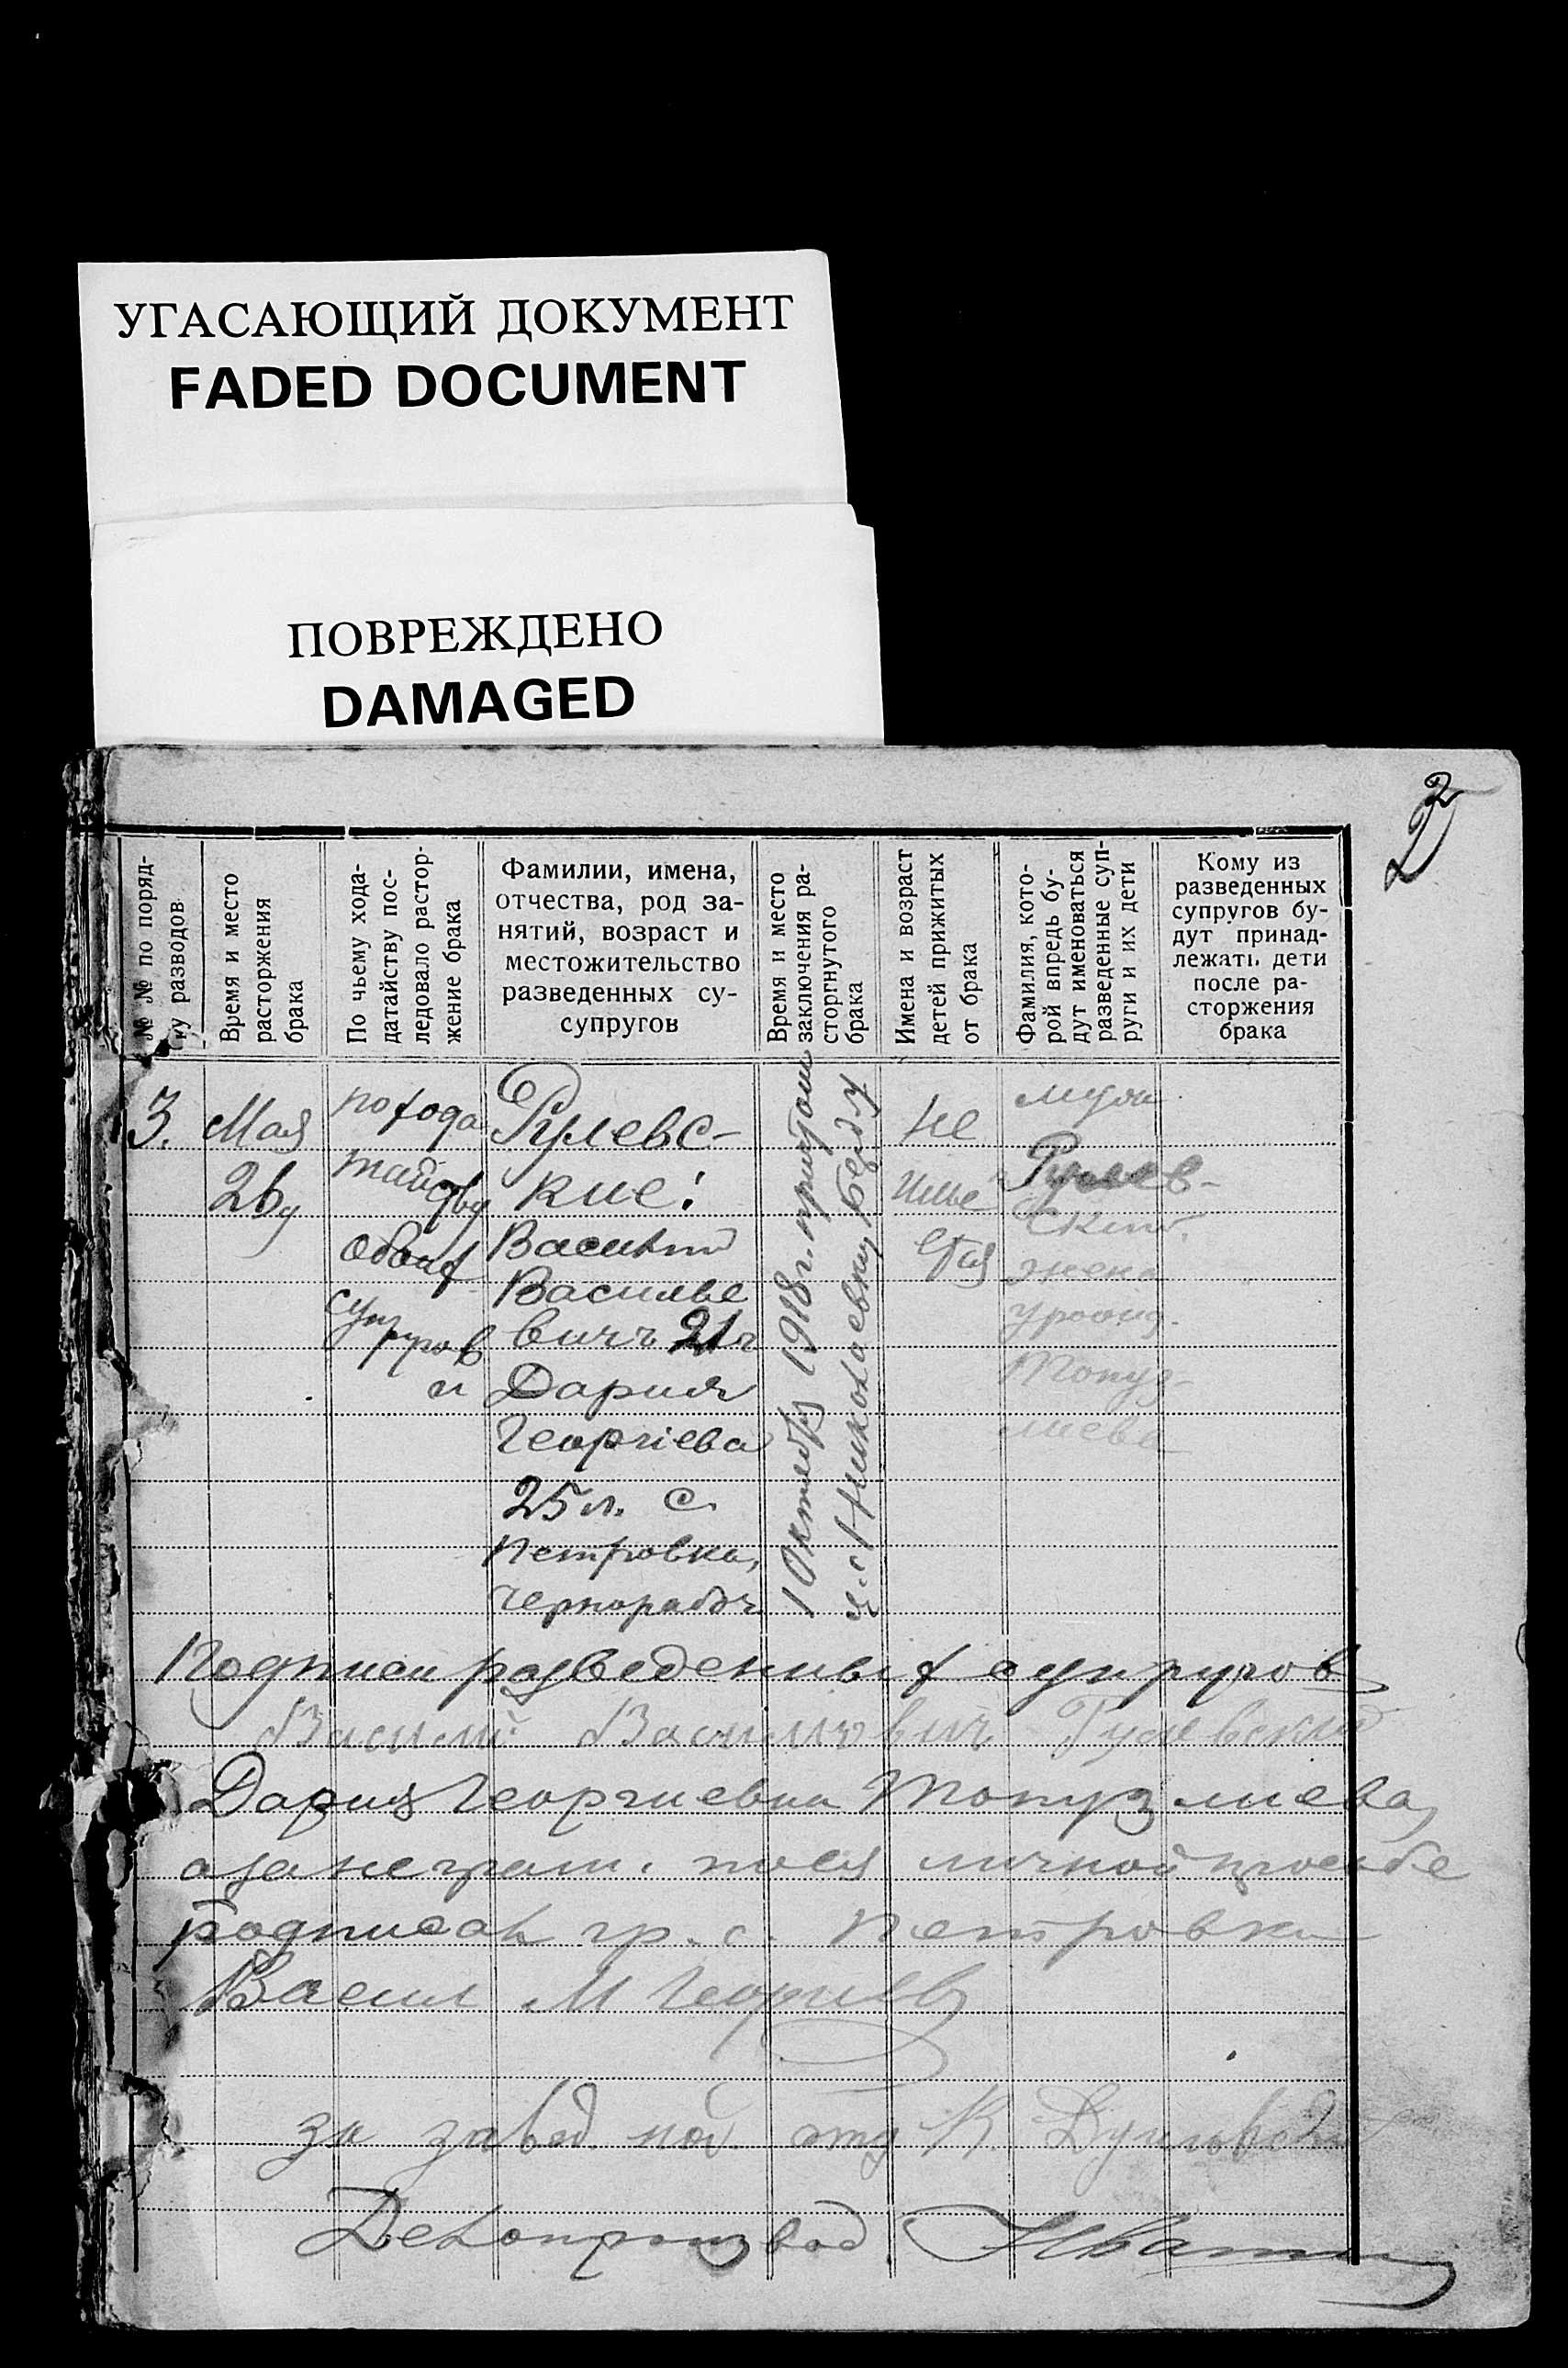 УГАСАЮЩИЙ ДОКУМЕНТ
FADED DOCUMENT
ПОВРЕЖДЕНО
DAMAGED
2
№ № по поряд-
ку разводов
Время и место
расторжения
брака
По чьему хода-
датайству пос-
ледовало растор-
жение брака
Фамилии, имена,
отчества, род за-
нятий, возраст и
местожительство
разведенных су-
супругов
Время и место
заключения ра-
сторгнутого
брака
Имена и возраст
детей прижитых
от брака
Фамилия, кото-
рой впредь бу-
дут именоваться
разведенные суп-
руги и их дети
Кому из
разведенных
супругов бу-
дут принад-
лежать дети
после ра-
сторжения
брака
3.
Мая
26
по хода
тайству
обоих
супругов
и
Рулевс-
кие:
Василий
Василье
вичъ 21 г
Дария
Георгіева
25 л. с.
Петровка,
чернорабоч
1 Октября 1918 г.
с. Николаевку
не
име
ется
муж
Рулев-
ский
жена
урожд.
Топуз-
лиева
Подписи разведенных супругов
Василий Василиовичъ Рулевский
Дария Георгиевна Топузлиева,
а за неграм. по ея личной просьбе
подписал гр. с. Петровка
Васил М Георгиев
за завед. под. отд К.
Делопроизвод